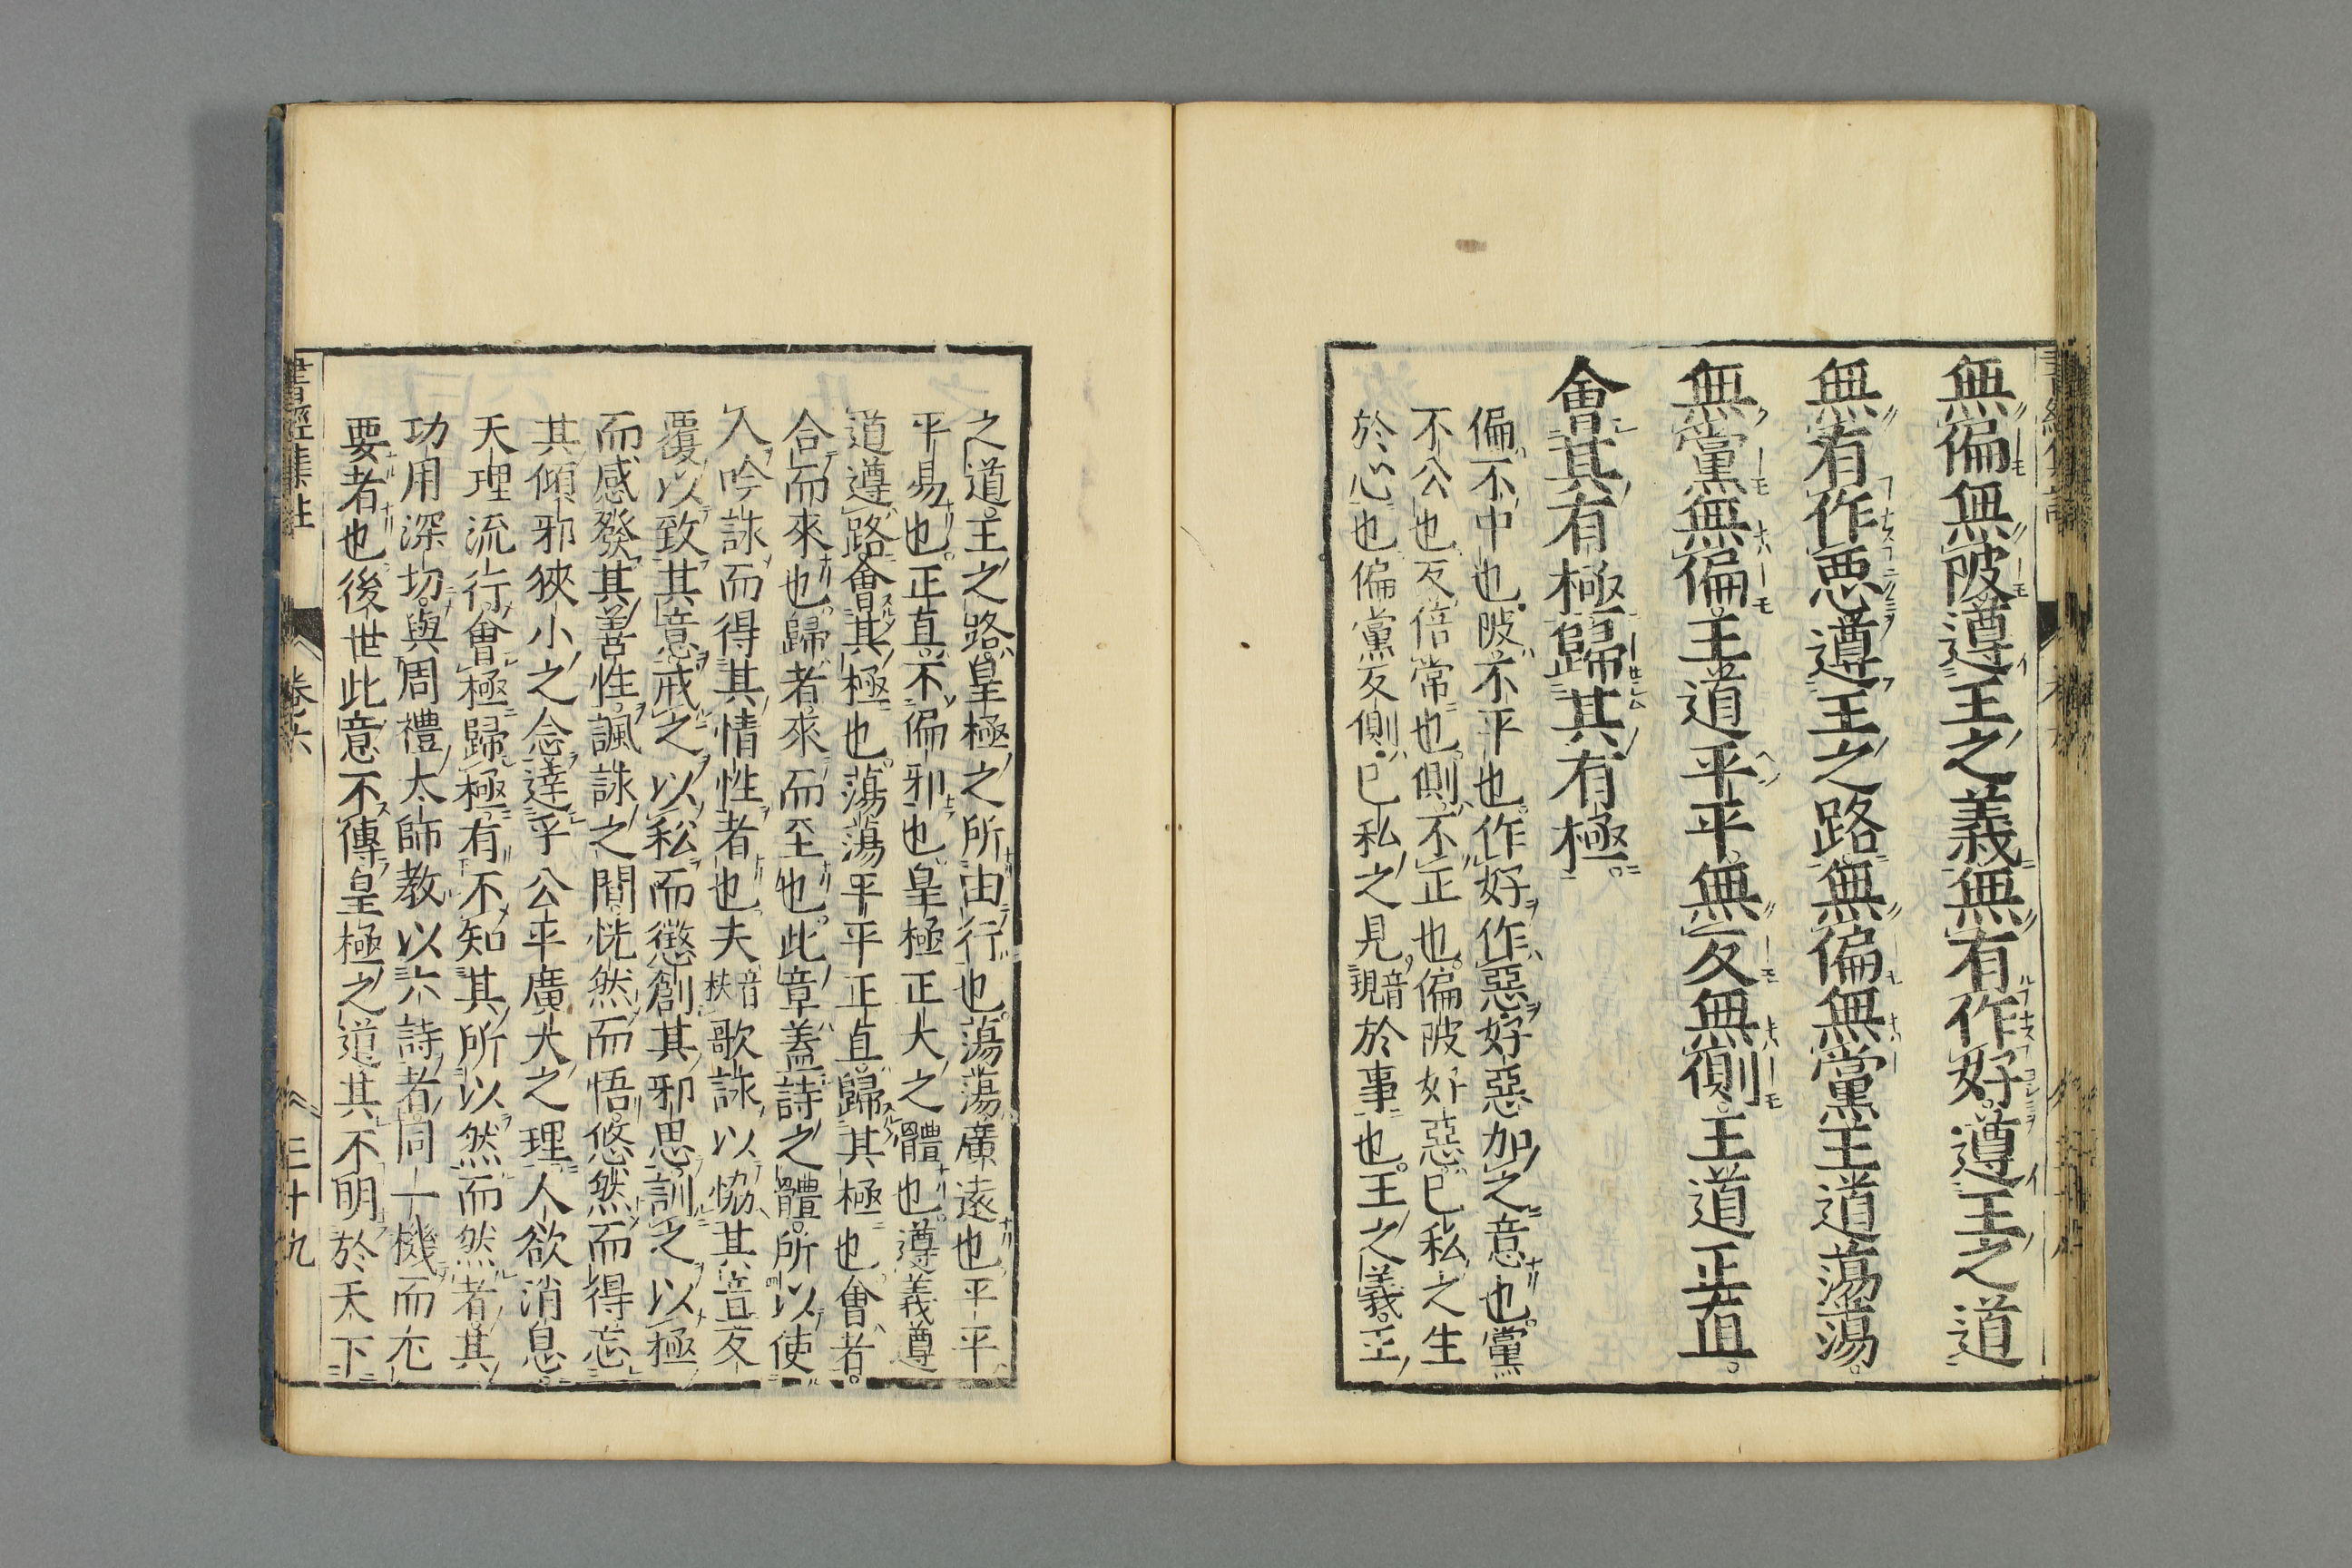 無偏無陂遵王之義無有作好遵王之道
無有作惡遵王之路無偏無黨王道蕩蕩
無黨無偏王道平平無反無側王道正直
會其有極歸其有極
偏不中也陂不平也作好作惡好惡加之意也黨
不公也反倍常也側不正也偏陂好惡已私之生
於心也偏黨反側已私之見音現於事也王之義王
之道王之路皇極之所由行也蕩蕩廣遠也平平
平易也正直不偏邪也皇極正大之體也遵義遵
道遵路會其極也蕩蕩平平正直歸其極也會者
合而來也歸者來而至也此章蓋詩之體所以使
人吟詠而得其情性者也夫音扶歌詠以恊其音反
覆以致其意戒之以私而懲創其邪思訓之以極
而感發其善性諷詠之間恍然而悟悠然而得忘
其傾邪狹小之念達乎公平廣大之理人欲消息
天理流行會極歸極有不知其所以然而然者其
功用深切與周禮大師教以六詩者同一機而尤
要者也後世此意不傳皇極之道其不明於天下
書經集註 卷六 三十九